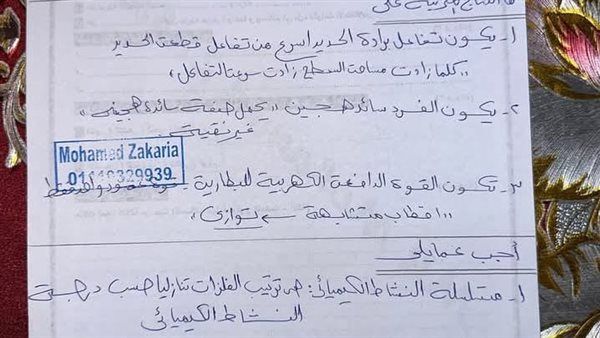 ١- يكون تفاعل برادة الحديد أسرع من تفاعل قطعة الحديد
"كلما زادت مساحة السطح زادت سرعة التفاعل"
٢- يكون الفرد سائد هجين "يحمل صفة سائدة هجينة"
غير نقية
Mohamed Zakaria
٣- تكون القوة الدافعة الكهربية للبطارية
"أقطاب متشابهة ← توازي"
أجب عما يلى
١- متسلسلة النشاط الكيميائى: هى ترتيب الفلزات تنازليا حسب درجة
النشاط الكيميائى